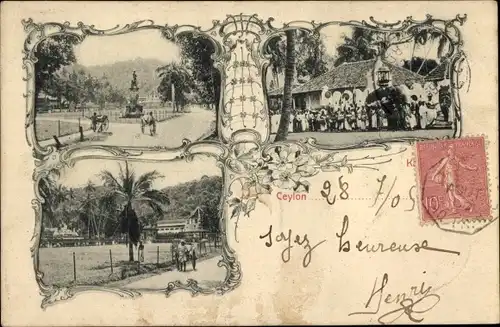 Ceylon
28 7/05
10
Soyez heureuse
Henri